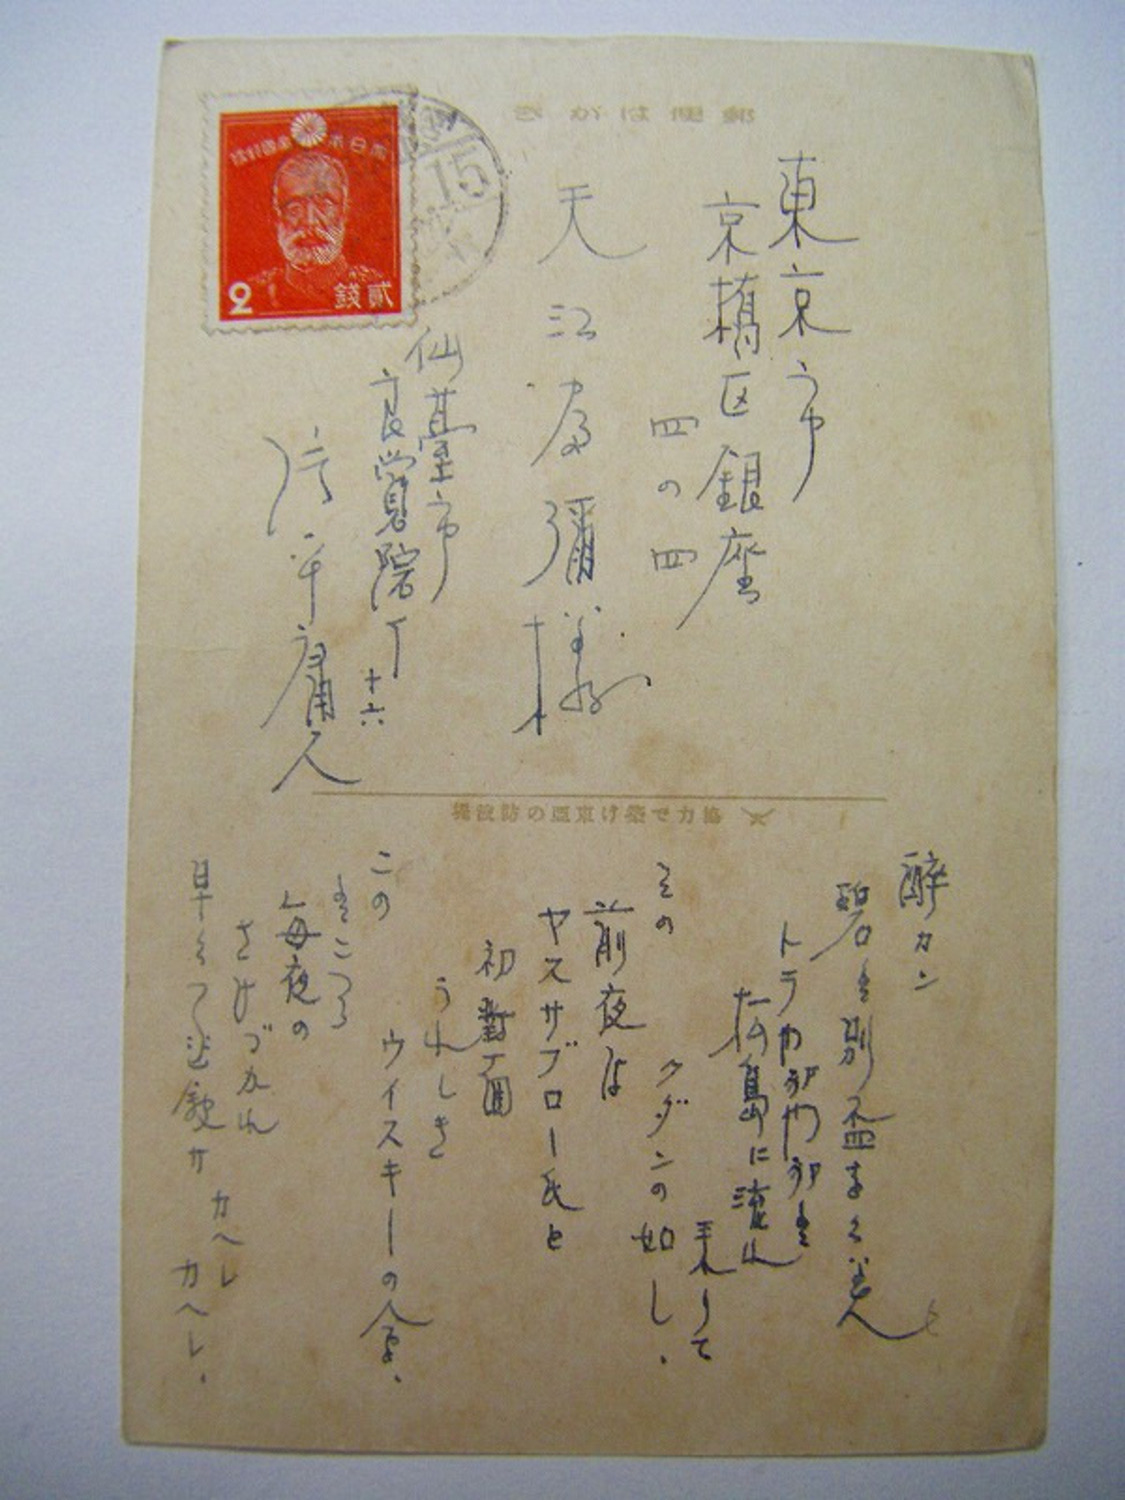 郵便はがき
大日本帝國郵便
貳錢
2
東京市
京橋区銀座
四の四
天江富彌様
仙臺市
良覺院丁
十六
片平庸人
協力で築け東亜の防波堤
酔カン
碧を別盃する美人
トラ
松島に漉れ
乗りて
クダンの如し.
その
前夜は
ヤスサブロー氏と
初對面
うれしき
ウイスキーの会.
この
ところ
毎夜の
さけづかれ
早く
カヘレ
カヘレ.